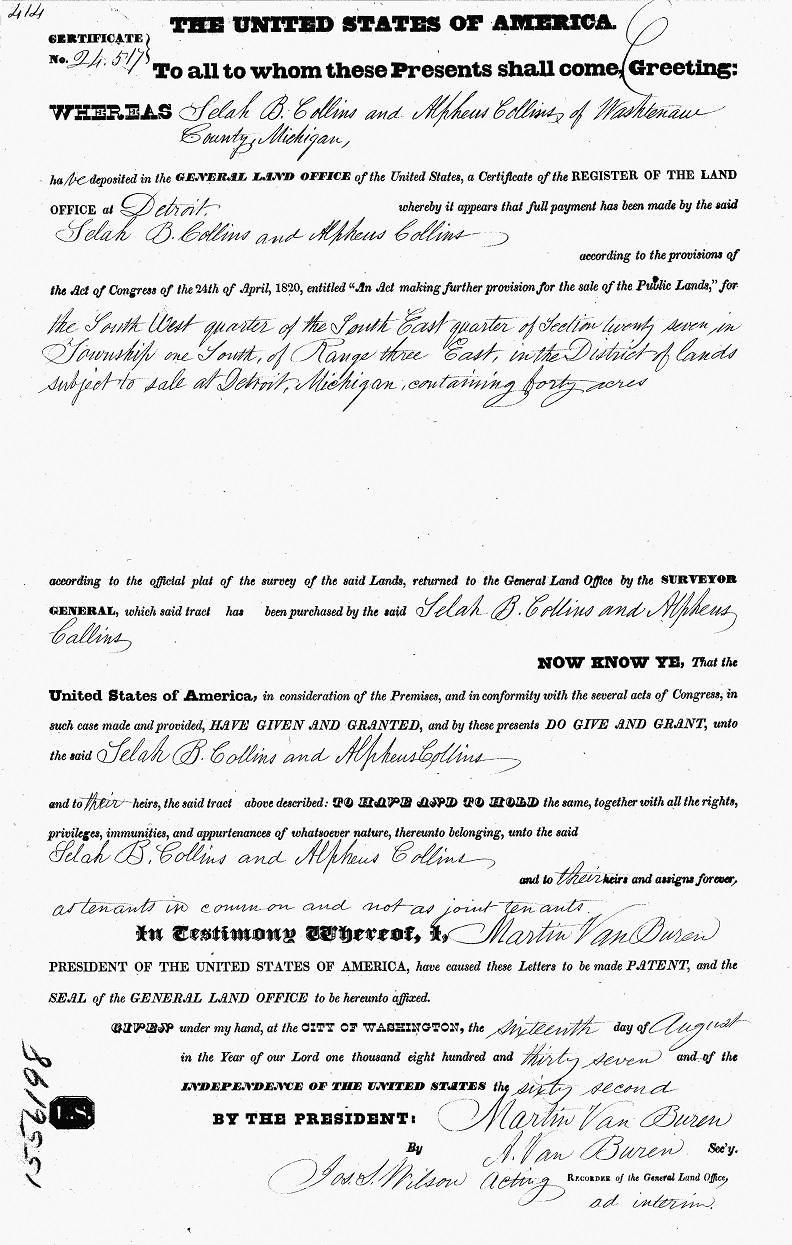 414
THE UNITED STATES OF AMERICA.
CERTIFICATE
No. 24.517
To all to whom these Presents shall come, Greeting:
WHEREAS Selah B. Collins and Alpheus Collins, of Washtenaw
County, Michigan,
have deposited in the GENERAL LAND OFFICE of the United States, a Certificate of the REGISTER OF THE LAND
OFFICE at Detroit. whereby it appears that full payment has been made by the said
Selah B. Collins and Alpheus Collins
according to the provisions of
the Act of Congress of the 24th of April, 1820, entitled "An Act making further provision for the sale of the Public Lands," for
the South West quarter of the South East quarter of Section twenty seven in
Township one South, of Range three East, in the District of lands
subject to sale at Detroit, Michigan, containing forty acres
according to the official plat of the survey of the said Lands, returned to the General Land Office by the SURVEYOR
GENERAL, which said tract has been purchased by the said Selah B. Collins and Alpheus
Collins
NOW KNOW YE, That the
United States of America, in consideration of the Premises, and in conformity with the several acts of Congress, in
such case made and provided, HAVE GIVEN AND GRANTED, and by these presents DO GIVE AND GRANT, unto
the said Selah B. Collins and Alpheus Collins
and to their heirs, the said tract above described: TO HAVE AND TO HOLD the same, together with all the rights,
privileges, immunities, and appurtenances of whatsoever nature, thereunto belonging, unto the said
Selah B. Collins and Alpheus Collins
and to their heirs and assigns forever,
as tenants in common and not as joint tenants.
In Testimony Whereof, I, Martin Van Buren
PRESIDENT OF THE UNITED STATES OF AMERICA, have caused these Letters to be made PATENT, and the
SEAL of the GENERAL LAND OFFICE to be hereunto affixed.
GIVEN under my hand, at the CITY OF WASHINGTON, the sixteenth day of August
in the Year of our Lord one thousand eight hundred and thirty seven and of the
INDEPENDENCE OF THE UNITED STATES the sixty second
L.S.
BY THE PRESIDENT: Martin Van Buren
By A. Van Buren Sec'y.
Jos. S. Wilson acting RECORDER of the General Land Office,
ad interim.
1556198